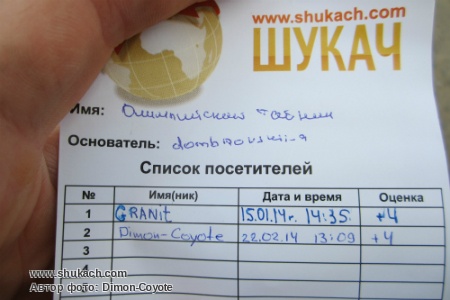 www.shukach.com
ШУКАЧ
Имя: Олимпийский тайник
Основатель: dombrovskii-a
Список посетителей
№ Имя(ник) Дата и время Оценка
1 GRANit 15.01.14г. 14:35 +4
2 Dimon-Coyote 22.02.14 13:09 +4
3
www.shukach.com
Автор фото: Dimon-Coyote